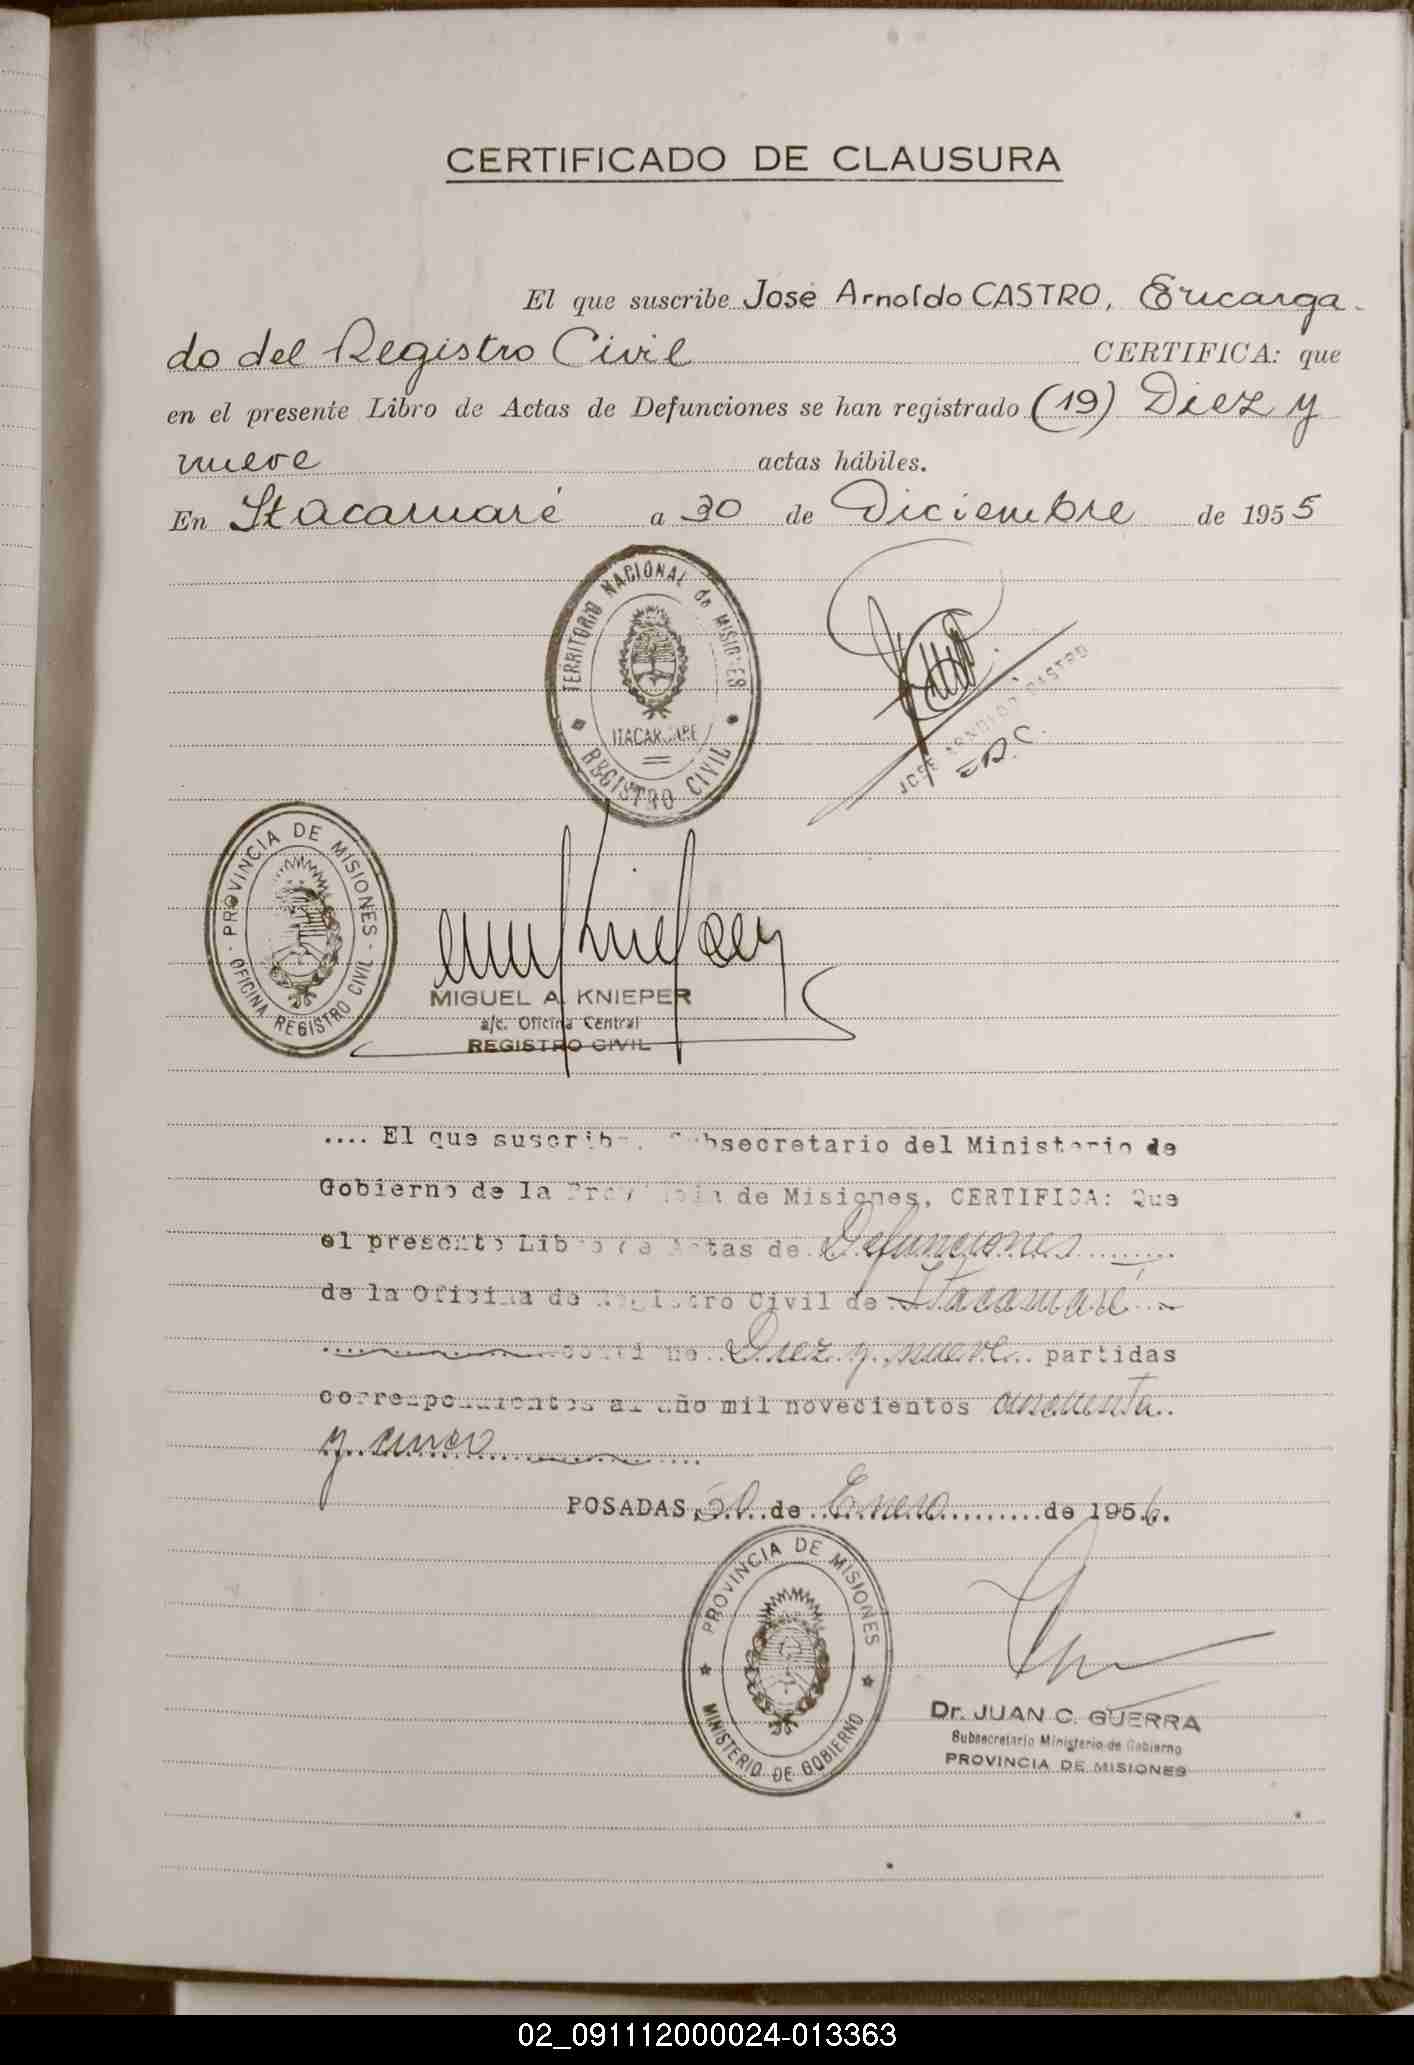 CERTIFICADO DE CLAUSURA
El que suscribe José Arnoldo CASTRO, Encarga-
do del Registro Civil CERTIFICA: que
en el presente Libro de Actas de Defunciones se han registrado (19) Diez y
nueve actas hábiles.
En Itacaruaré a 30 de Diciembre de 1955
TERRITORIO NACIONAL de MISIONES
ITACARUARE
REGISTRO CIVIL
JOSE ARNOLDO CASTRO
E.R.C.
PROVINCIA DE MISIONES
OFICINA REGISTRO CIVIL
MIGUEL A. KNIEPER
a/c. Oficina Central
REGISTRO CIVIL
.... El que suscribe, Subsecretario del Ministerio de
Gobierno de la Provincia de Misiones, CERTIFICA: Que
el presente Libro de Actas de Defunciones
de la Oficina de Registro Civil de Itacaruaré
contiene Diez y nueve partidas
correspondientes al año mil novecientos cincuenta
y cinco
POSADAS, de Enero de 1956.
PROVINCIA DE MISIONES
MINISTERIO DE GOBIERNO
Dr. JUAN C. GUERRA
Subsecretario Ministerio de Gobierno
PROVINCIA DE MISIONES
02_091112000024-013363